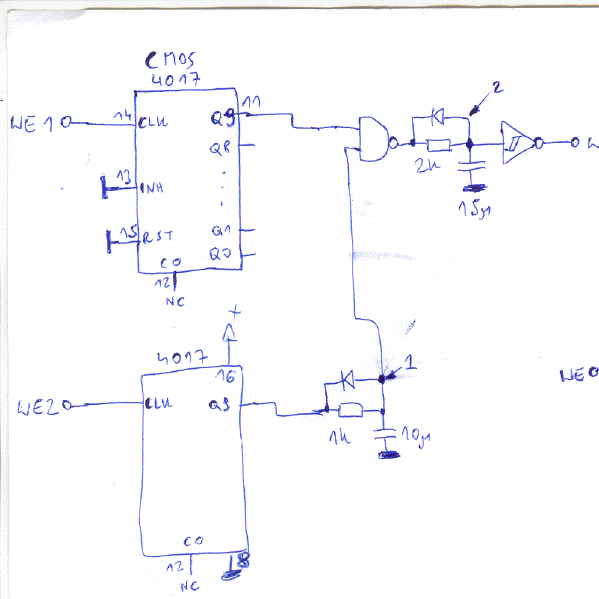 CMOS
4017
WE1
14
CLK
Q9
11
Q8
13
INH
15
RST
Q1
Q0
CO
12
NC
2
2k
15µ
+
4017
16
WE2
CLK
Q9
1
1k
10µ
CO
12
NC
8